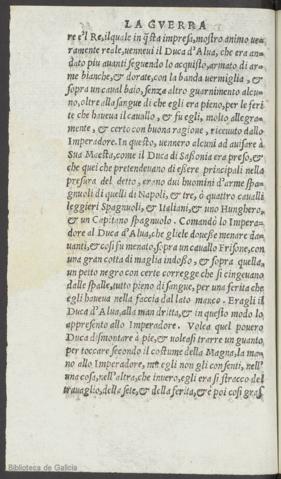 LA GVERRA
re e'l Re, ilquale in q̃sta impresa, mostro animo ue-
ramente reale, uenneui il Duca d'Alua, che era an-
dato piu auanti seguendo lo acquisto, armato di ar-
me bianche, & dorate, con la banda uermiglia, &
sopra un caual baio, senza altro guarnimento alcu-
no, oltre alla sangue di che egli era pieno, per le feri-
te che haueua il cauallo, & fu egli, molto allegra-
mente, & certo con buona ragione, riceuuto dallo
Imperadore. In questo, uennero alcuni ad auisare à
Sua Maestà, come il Duca di Sassonia era preso, &
che quei che pretendeuano di essere principali nella
presura del detto, erano dui huomini d'arme Spa-
gnuoli di quelli di Napoli, & tre, ò quattro caualli
leggieri Spagnuoli, & Italiani, & uno Hunghero,
& un Capitano Spagnuolo. Comandò lo Impera-
dore al Duca d'Alua, che gliele douesse menare da-
uanti, & cosi fu menato, sopra un cauallo Frisone, con
una gran cotta di maglia indosso, & sopra quella,
un petto negro con certe corregge che si cingeuano
dalle spalle, tutto pieno di sangue, per una ferita che
egli haueua nella faccia dal lato manco. Eragli il
Duca d'Alua, alla man dritta, & in questo modo lo
appresento allo Imperadore. Volea quel pouero
Duca dismontare à pie, & uoleasi trarre un guanto,
per toccare secondo il costume della Magna, la ma-
no allo Imperadore, ma egli non gli consenti, nell'
una cosa, nell'altra, che inuero, egli era si stracco del
trauaglio, della sete, & della ferita, & è poi cosi gras
Biblioteca de Galicia